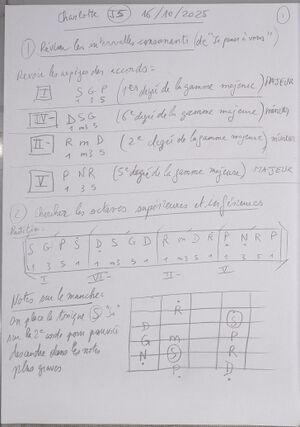 Charlotte J5 16/10/2025
1
1) Réviser les intervalles consonants (de "Je pense à vous")
Revoir les arpèges des accords =
I S G P (1er degré de la gamme majeure) MAJEUR
1 3 5
IV- D S G (6e degré de la gamme majeure) mineur
1 m3 5
II- R m D (2e degré de la gamme majeure) mineur
1 m3 5
V P N R (5e degré de la gamme majeure) MAJEUR
1 3 5
2) Chercher les octaves supérieures et inférieures
Partition =
S G P S D S G D R m D R P N R P
1 3 5 1 1 m3 5 1 1 m3 5 1 1 3 5 1
I VI- II- V
Notes sur le manche
On place la tonique S
sur la 2e corde pour pouvoir
descendre dans les notes
plus graves
R
D S
G m P
N S R
P D